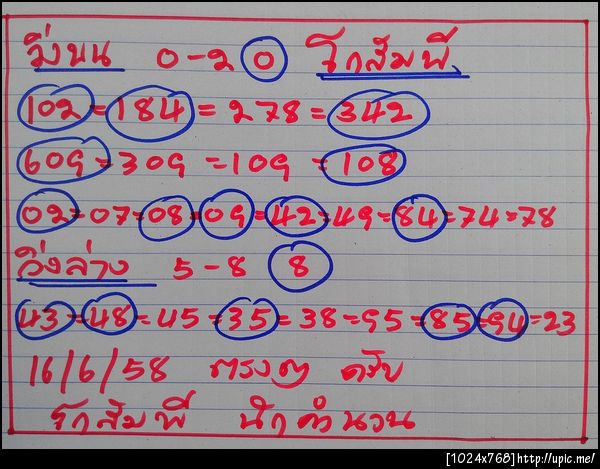 วิ่งบน 0-2 0 โกสัมพี
102=184=278=342
609=309=109=108
02=07=08=09=42=49=84=74=78
วิ่งล่าง 5-8 8
43=48=45=35=38=95=85=94=23
16/6/58 ตรงๆ ครับ
โกสัมพี นักคำนวน
[1024x768]http://upic.me/